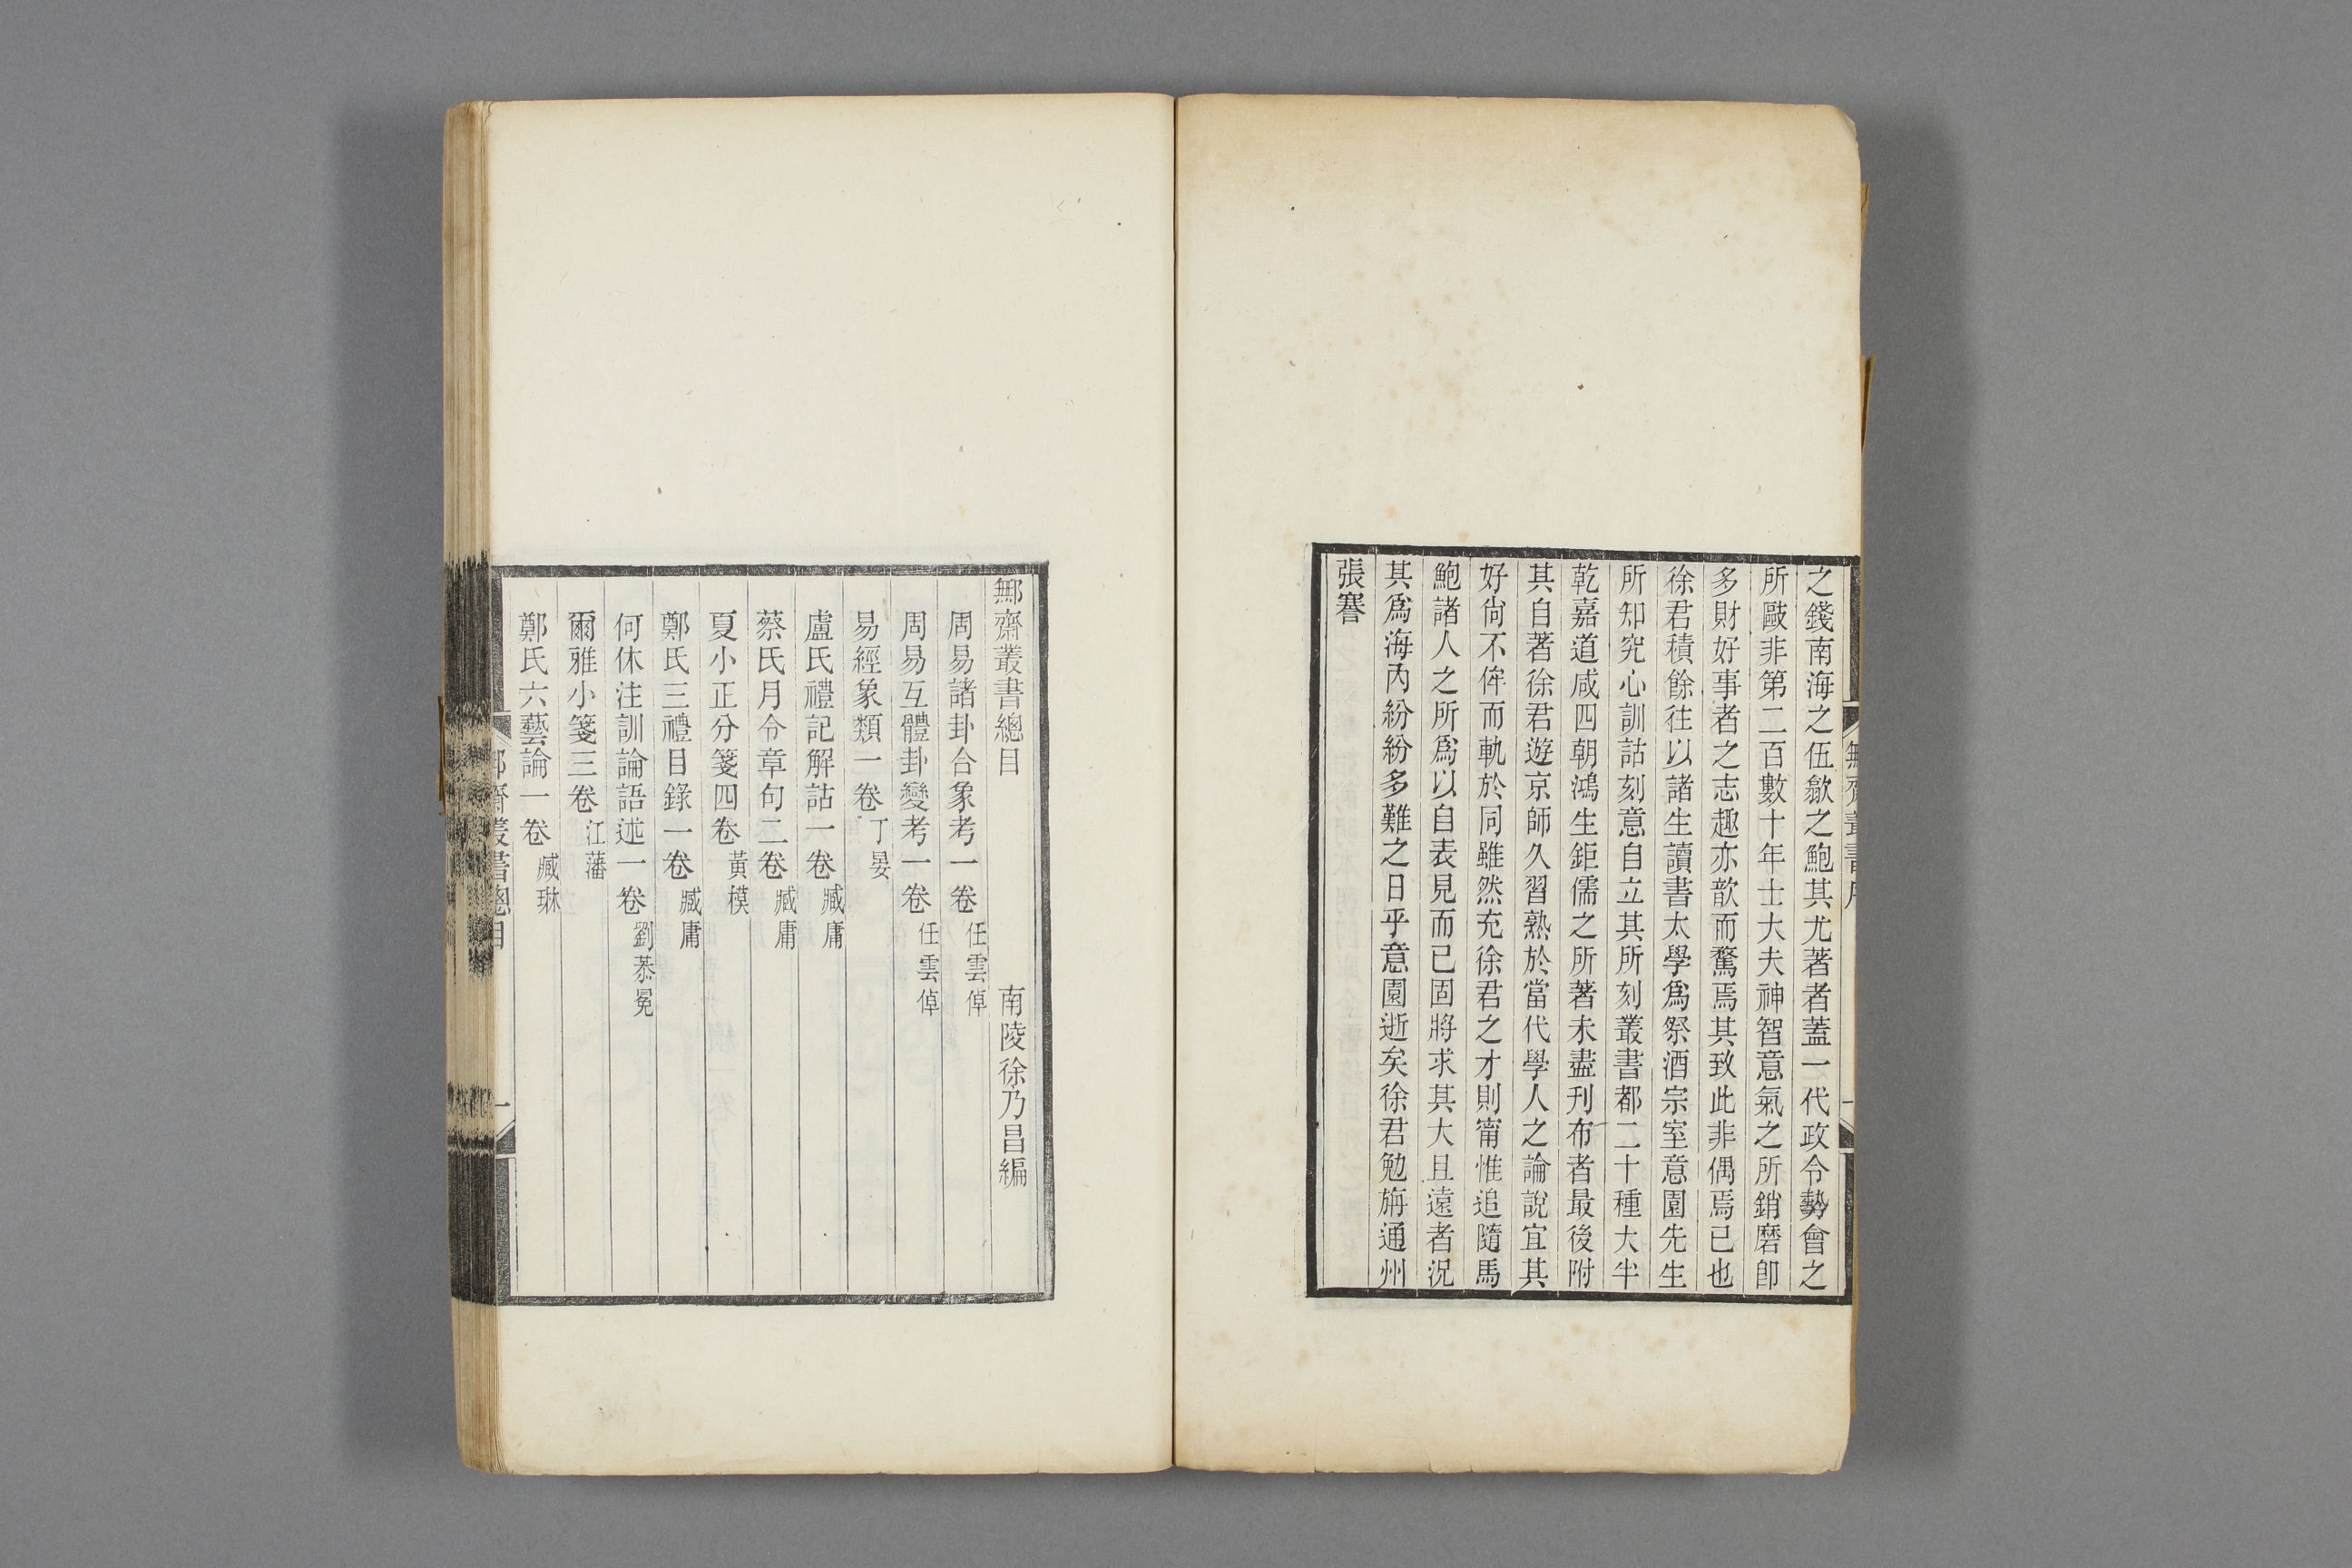 之錢南海之伍歙之鮑其尤著者蓋一代政令勢會之
所敺非第二百數十年士大夫神智意氣之所銷磨卽
多財好事者之志趣亦歆而騖焉其致此非偶焉已也
徐君積餘往以諸生讀書太學爲祭酒宗室意園先生
所知究心訓詁刻意自立其所刻叢書都二十種大半
乾嘉道咸四朝鴻生鉅儒之所著未盡刊布者最後附
其自著徐君遊京師久習熟於當代學人之論說宜其
好尙不侔而軌於同雖然充徐君之才則甯惟追隨馬
鮑諸人之所爲以自表見而已固將求其大且遠者況
其爲海內紛紛多難之日乎意園逝矣徐君勉旃通州
張謇
鄦齋叢書總目 南陵徐乃昌編
周易諸卦合象考一卷 任雲倬
周易互體卦變考一卷 任雲倬
易經象類一卷 丁晏
盧氏禮記解詁一卷 臧庸
蔡氏月令章句二卷 臧庸
夏小正分箋四卷 黃模
鄭氏三禮目錄一卷 臧庸
何休注訓論語述一卷 劉恭冕
爾雅小箋三卷 江藩
鄭氏六藝論一卷 臧琳